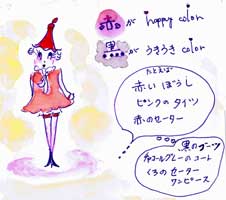 赤が happy color
黒が うきうき color
たとえば
赤いぼうし
ピンクのタイツ
赤のセーター
黒のブーツ
チャコールグレーのコート
くろのセーター
ワンピース